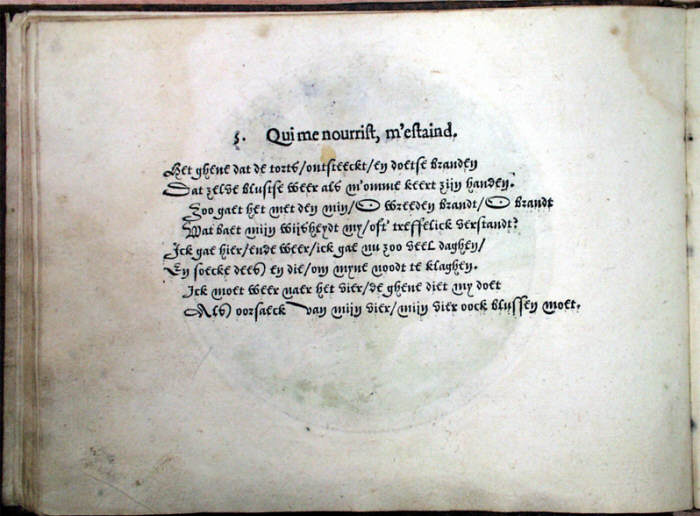 5. Qui me nourrist, m'estaind.
Het ghene dat de torts/ontsteeckt/en doetse branden
Dat zelve blustse weer als m'omme keert zijn handen.
Zoo gaet het met den min/O wreeden brandt/O brandt
Wat baet mijn wijsheydt my/oft' treffelick verstandt?
Ick gae hier/ende weer/ick gae nu zoo veel daghen/
En soecke dees en die/om myne noodt te klaghen.
Ick moet weer naer het vier/de ghene diet my doet
Als oorsaeck van mijn vier/mijn vier oock blussen moet.